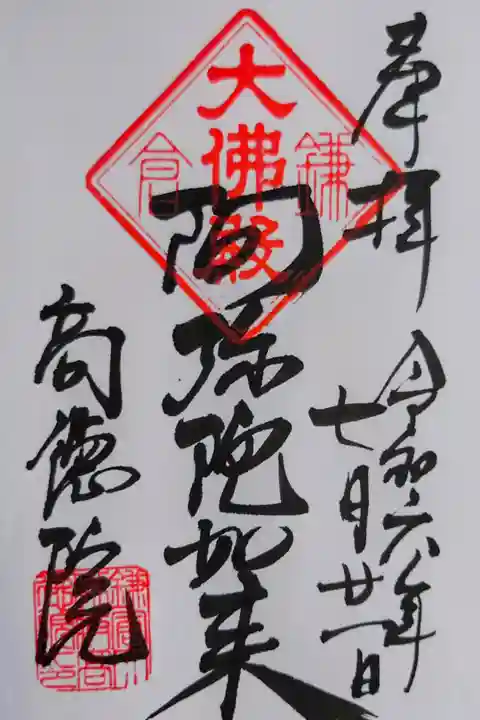 奉拝
令和六年
七月廿一日
鎌倉
大佛殿
阿弥陀如来
高徳院